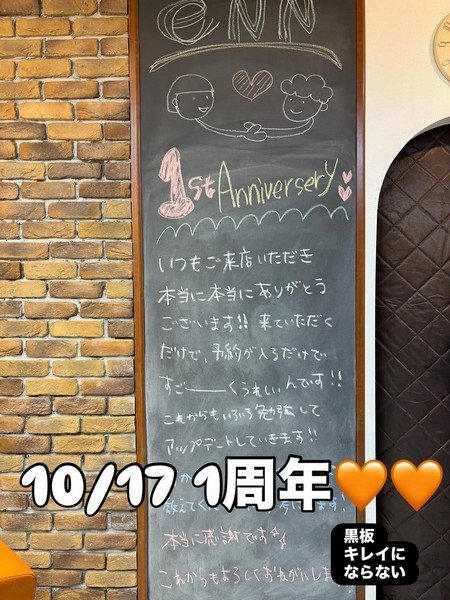 enn
1st Anniversery
いつもご来店いただき
本当に本当にありがとう
ございます!! 来ていただく
だけで、予約が入るだけで
すごーーくうれしいんです!!
これからもいろいろ勉強して
アップデートしていきます!!
10/17 1周年🧡🧡
教えてく
本当に感謝です
これからもよろしくおねがいしま
黒板
キレイに
ならない